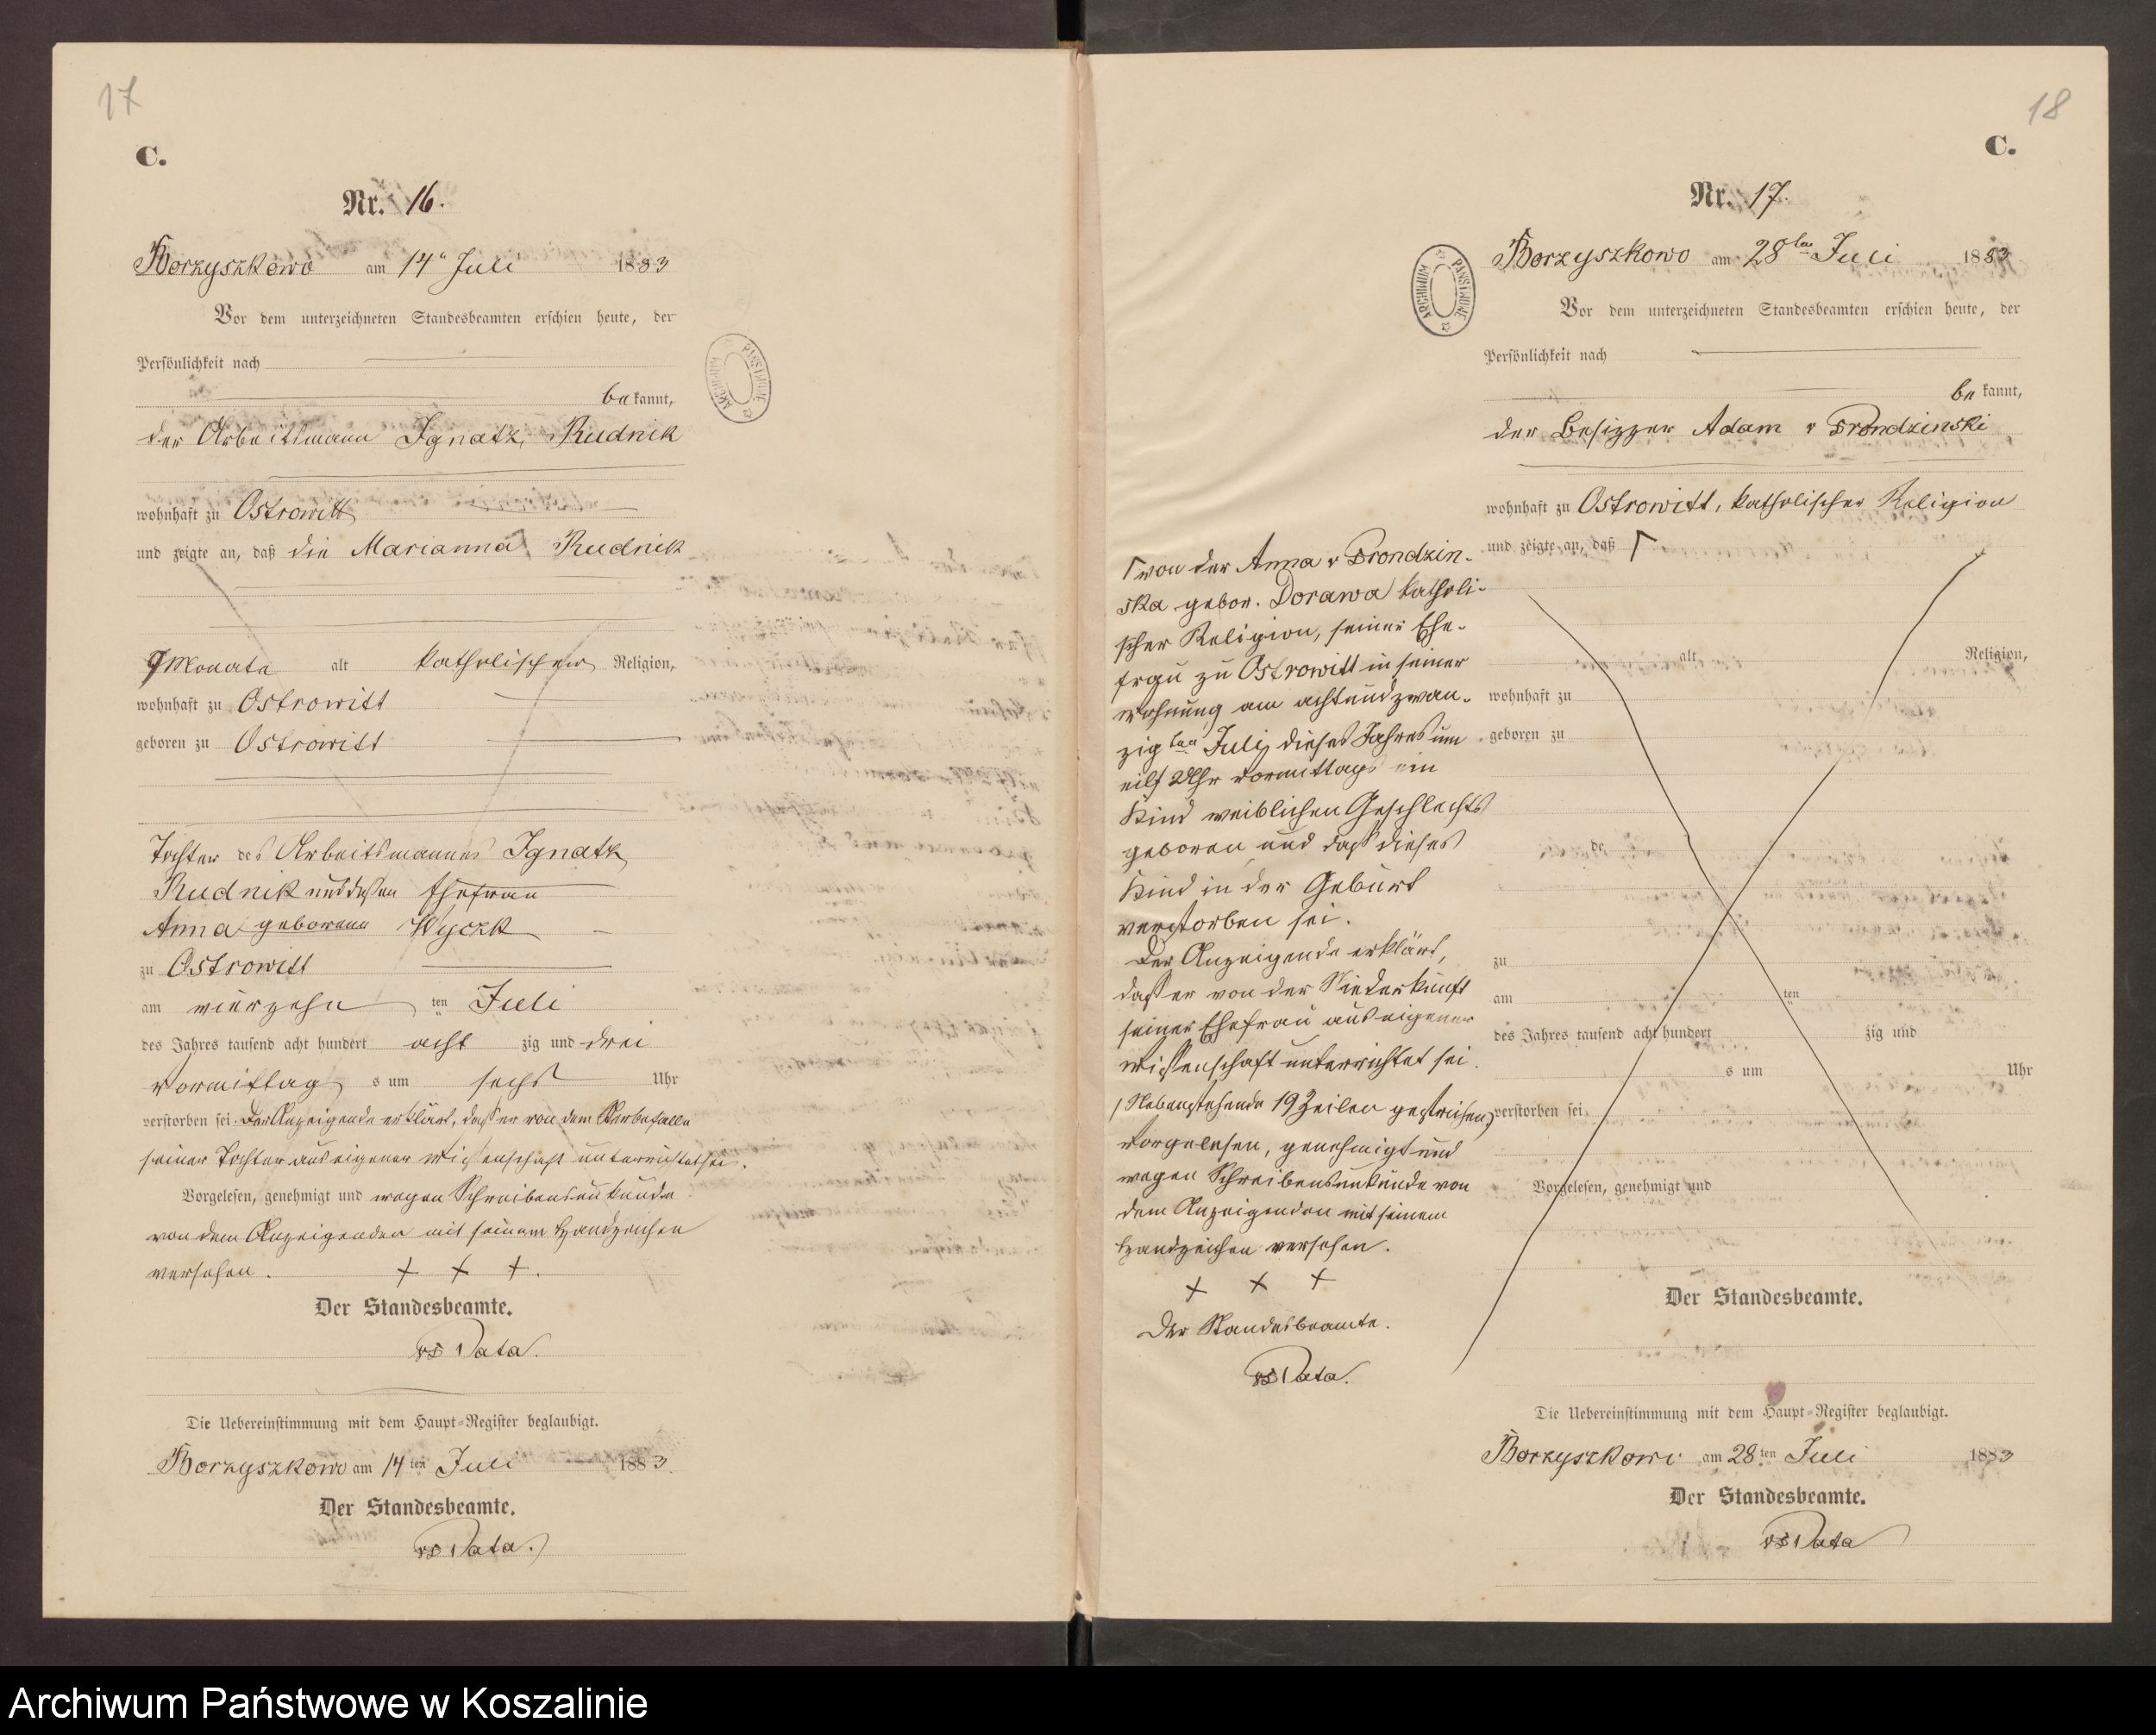 17
C.
Nr. 16.
Borzyszkowo am 14ⁿ Juli 1883
Vor dem unterzeichneten Standesbeamten erschien heute, der
Persönlichkeit nach
be kannt,
der Arbeitsmann Ignatz Rudnik
wohnhaft zu Ostrowitt
und zeigte an, daß die Marianna Rudnik
9 Monate alt katholischer Religion,
wohnhaft zu Ostrowitt
geboren zu Ostrowitt
Tochter des Arbeitsmannes Ignatz
Rudnik und dessen Ehefrau
Anna geborene Wyczk
zu Ostrowitt
am vierzehn ten Juli
des Jahres tausend acht hundert acht zig und drei
Vormittag s um sechs Uhr
verstorben sei. Der Anzeigende erklärt, daß er von dem Sterbefalle
seiner Tochter aus eigener Wissenschaft unterrichtet sei.
Vorgelesen, genehmigt und wegen Schreibensunkunde
von dem Anzeigenden mit seinem Handzeichen
versehen. + + +.
Der Standesbeamte.
Data.
Die Uebereinstimmung mit dem Haupt-Register beglaubigt.
Borzyszkowo am 14 ten Juli 1883.
Der Standesbeamte.
Data.
18
C.
Nr. 17.
Borzyszkowo am 28ten Juli 1883
Vor dem unterzeichneten Standesbeamten erschien heute, der
Persönlichkeit nach
be kannt,
der Besizzer Adam v Prondzinski
wohnhaft zu Ostrowitt, katholischer Religion
und zeigte an, daß Γ
Γ von der Anna v Prondzin-
ska gebor. Dorawa katholi-
scher Religion, seiner Ehe-
frau zu Ostrowitt in seiner
Wohnung am achtundzwan-
zigten Juli dieses Jahres um
eilf Uhr Vormittags ein
Kind weiblichen Geschlechts
geboren und daß dieses
Kind in der Geburt
verstorben sei.
Der Anzeigende erklärt,
daß er von der Niederkunft
seiner Ehefrau aus eigener
Wissenschaft unterrichtet sei.
/Nebenstehende 19 Zeilen gestrichen/
Vorgelesen, genehmigt und
wegen Schreibensunkunde von
dem Anzeigenden mit seinem
Handzeichen versehen.
+ + +
Der Standesbeamte.
Data.
alt Religion,
wohnhaft zu
geboren zu
de
zu
am ten
des Jahres tausend acht hundert zig und
s um Uhr
verstorben sei.
Vorgelesen, genehmigt und
Der Standesbeamte.
Die Uebereinstimmung mit dem Haupt-Register beglaubigt.
Borzyszkowo am 28 ten Juli 1883
Der Standesbeamte.
Data
ARCHIWUM PAŃSTWOWE
ARCHIWUM PAŃSTWOWE
Archiwum Państwowe w Koszalinie